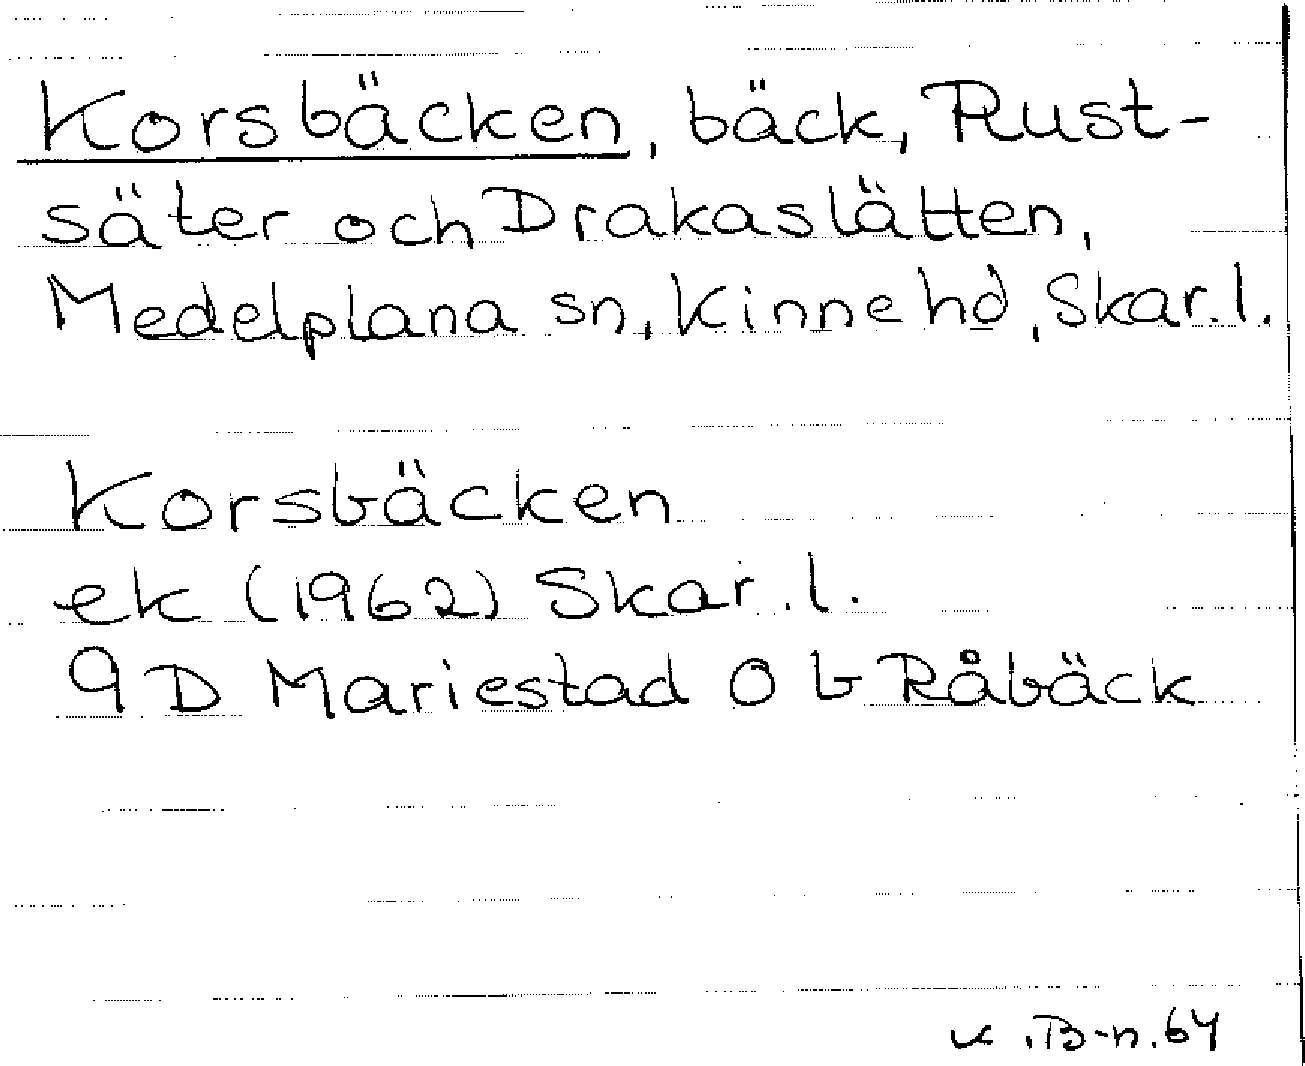 Korsbäcken, bäck, Rust-
säter och Drakaslätten,
Medelplana sn, Kinne hd, Skar. l.
Korsbäcken
ek (1962) Skar. l.
9 D Mariestad O b Råbäck
K. B-n. 64